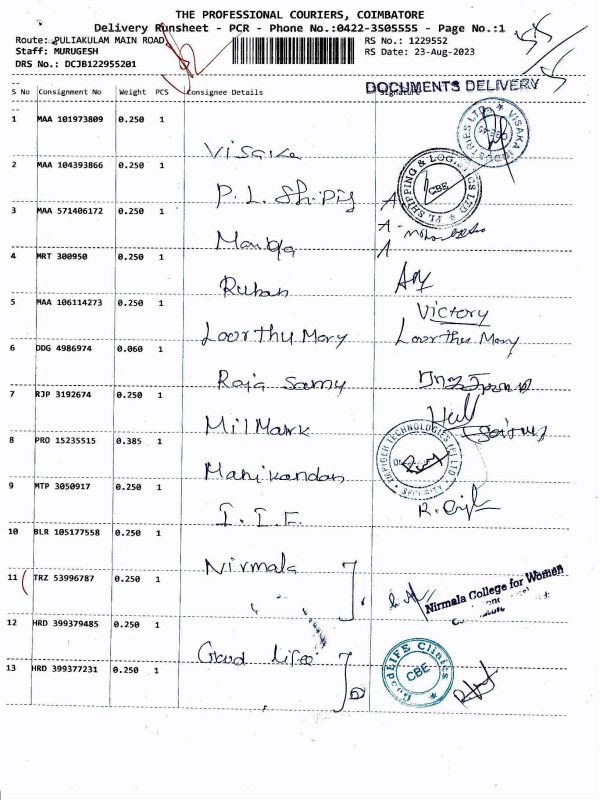 THE PROFESSIONAL COURIERS, COIMBATORE
Delivery Runsheet - PCR - Phone No.:0422-3505555 - Page No.:1
Route: PULIAKULAM MAIN ROAD RS No.: 1229552
Staff: MURUGESH RS Date: 23-Aug-2023
DRS No.: DCJB122955201
DOCUMENTS DELIVERY
S No Consignment No Weight PCS Consignee Details Signature
1 MAA 101973809 0.250 1
Visaka VISAKA INDUSTRIES LTD
2 MAA 104393866 0.250 1
P.L. Shipig PL SHIPPING & LOGISTICS LTD CBE
3 MAA 571406172 0.250 1
4 MRT 300950 0.250 1
Ruban
5 MAA 106114273 0.250 1 Victory
Loorthu Mary Loorthu Mary
6 DDG 4986974 0.060 1
Raja Samy
7 RJP 3192674 0.250 1
Mil Mark
8 PRO 15235515 0.385 1
Manikandan TECHNOLOGIES (P) LTD SECURITY
9 MTP 3050917 0.250 1
10 BLR 105177558 0.250 1
Nirmala
11 TRZ 53996787 0.250 1
Nirmala College for Women
12 HRD 399379485 0.250 1
Good Life GoodLIFE Clinics CBE
13 HRD 399377231 0.250 1